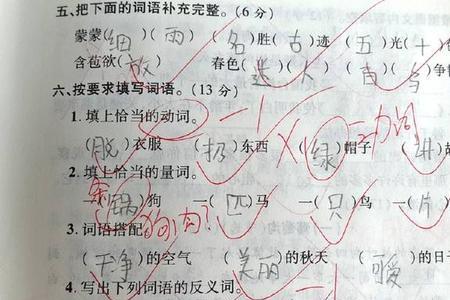 五、把下面的词语补充完整。(6分)
蒙蒙(细)(雨) (名)胜(古)迹 (五)光(十)
含苞欲(放) 春色(迷)(人) (百)(鸟)争
六、按要求填写词语。(13分)
1. 填上恰当的动词。 -1
(脱)衣服 (扔)东西 (绿)帽子 动词
2. 填上恰当的量词。
一(锅)狗 一(匹)马 一(只)鸟 一(片)
3. 词语搭配 狗肉?
(干净)的空气 (美丽)的秋天 (暖)的日
4. 写出下列词语的反义词。